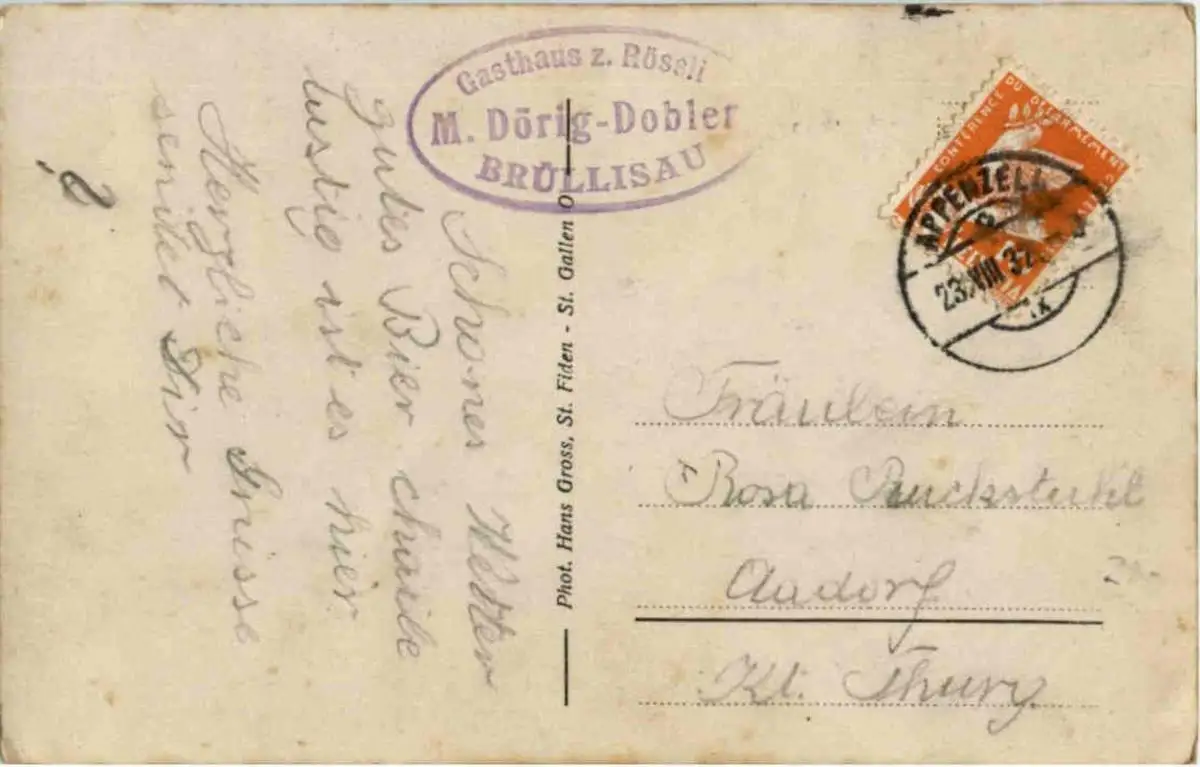 Gasthaus z. Rössli
M. Dörig-Dobler
BRÜLLISAU
Schönes Wetter
gutes Bier. chuaibe
lustig ist es hier.
Herzliche Grüsse
sendet Dir
Phot. Hans Gross, St. Fiden - St. Gallen O
CONFÉRENCE DU DÉSARMEMENT
APPENZELL
23.VIII 32
Fräulein
Rosa Ruckstuhl
Aadorf
Kt. Thurg.